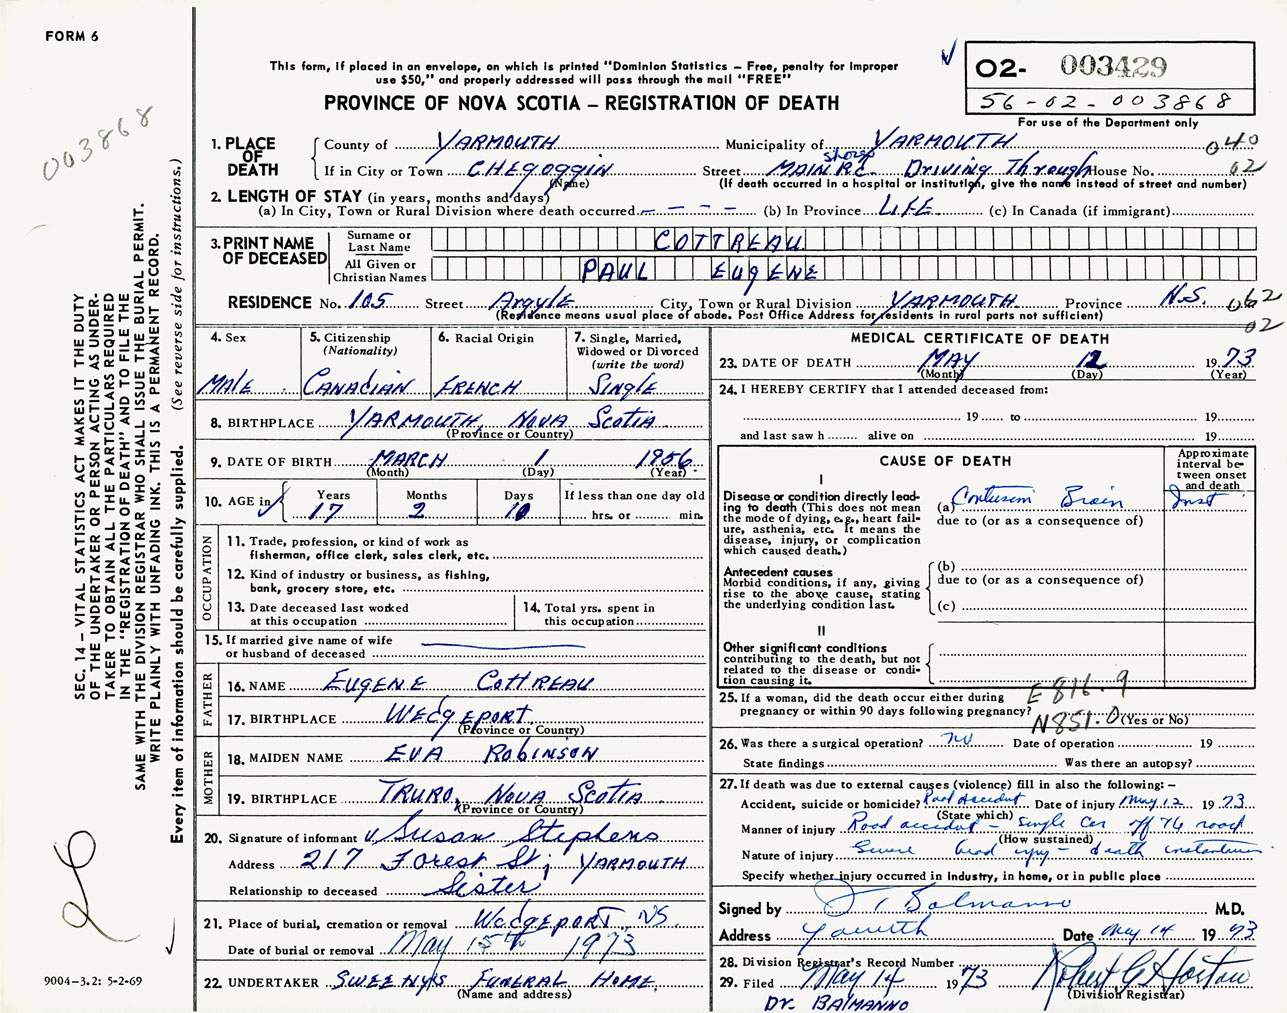 FORM 6
This form, if placed in an envelope, on which is printed "Dominion Statistics – Free, penalty for improper
use $50," and properly addressed will pass through the mail "FREE"
PROVINCE OF NOVA SCOTIA – REGISTRATION OF DEATH
O2- 003429
56-02-003868
For use of the Department only
003868
SEC. 14 – VITAL STATISTICS ACT MAKES IT THE DUTY
OF THE UNDERTAKER OR PERSON ACTING AS UNDER-
TAKER TO OBTAIN ALL THE PARTICULARS REQUIRED
IN THE "REGISTRATION OF DEATH" AND TO FILE THE
SAME WITH THE DIVISION REGISTRAR WHO SHALL ISSUE THE BURIAL PERMIT.
WRITE PLAINLY WITH UNFADING INK. THIS IS A PERMANENT RECORD.
Every item of information should be carefully supplied. (See reverse side for instructions.)
1. PLACE OF DEATH
County of YARMOUTH Municipality of YARMOUTH 040
If in City or Town CHEGOGGIN Street MAIN Shore Rd. Driving Through House No. 02
(Name) (If death occurred in a hospital or institution, give the name instead of street and number)
2. LENGTH OF STAY (in years, months and days)
(a) In City, Town or Rural Division where death occurred - - - - (b) In Province LIFE (c) In Canada (if immigrant)
3. PRINT NAME OF DECEASED
Surname or Last Name COTTREAU
All Given or Christian Names PAUL EUGENE
RESIDENCE No. 105 Street Argyle City, Town or Rural Division YARMOUTH Province N.S. 062
(Residence means usual place of abode. Post Office Address for residents in rural parts not sufficient) 02
4. Sex
MALE
5. Citizenship (Nationality)
CANADIAN
6. Racial Origin
FRENCH
7. Single, Married, Widowed or Divorced (write the word)
SINGLE
8. BIRTHPLACE YARMOUTH, NOVA SCOTIA
(Province or Country)
9. DATE OF BIRTH MARCH 1 1956
(Month) (Day) (Year)
10. AGE in Years 17 Months 2 Days 10 If less than one day old hrs. or min.
OCCUPATION
11. Trade, profession, or kind of work as
fisherman, office clerk, sales clerk, etc.
12. Kind of industry or business, as fishing,
bank, grocery store, etc.
13. Date deceased last worked
at this occupation
14. Total yrs. spent in
this occupation
15. If married give name of wife
or husband of deceased
FATHER
16. NAME EUGENE COTTREAU
17. BIRTHPLACE WEDGEPORT
(Province or Country)
MOTHER
18. MAIDEN NAME EVA ROBINSON
19. BIRTHPLACE TRURO, NOVA SCOTIA
(Province or Country)
20. Signature of informant Susan Stephens
Address 217 Forest St; YARMOUTH
Relationship to deceased Sister
21. Place of burial, cremation or removal WEDGEPORT NS.
Date of burial or removal May 15th 1973
22. UNDERTAKER SWEENYS FUNERAL HOME.
(Name and address)
9004–3.2: 5-2-69
MEDICAL CERTIFICATE OF DEATH
23. DATE OF DEATH MAY 12 1973
(Month) (Day) (Year)
24. I HEREBY CERTIFY that I attended deceased from:
19 to 19
and last saw h alive on 19
CAUSE OF DEATH
Approximate interval between onset and death
I
Disease or condition directly lead-
ing to death (This does not mean
the mode of dying, e.g., heart fail-
ure, asthenia, etc. It means the
disease, injury, or complication
which caused death.)
(a) Contusion Brain Inst
due to (or as a consequence of)
Antecedent causes
Morbid conditions, if any, giving
rise to the above cause, stating
the underlying condition last.
(b)
due to (or as a consequence of)
(c)
II
Other significant conditions
contributing to the death, but not
related to the disease or condi-
tion causing it.
25. If a woman, did the death occur either during
pregnancy or within 90 days following pregnancy? (Yes or No)
E 816.9
N851.0
26. Was there a surgical operation? no Date of operation 19
State findings Was there an autopsy?
27. If death was due to external causes (violence) fill in also the following: –
Accident, suicide or homicide? Road Accident Date of injury May 12 1973
(State which)
Manner of injury Road accident – single car off the road
(How sustained)
Nature of injury Severe head injury – death instantaneous
Specify whether injury occurred in industry, in home, or in public place
Signed by Balmanno M.D.
Address Yarmouth Date May 14 1973
28. Division Registrar's Record Number
29. Filed May 14 1973 Robert G Horton
(Division Registrar)
Dr. BALMANNO